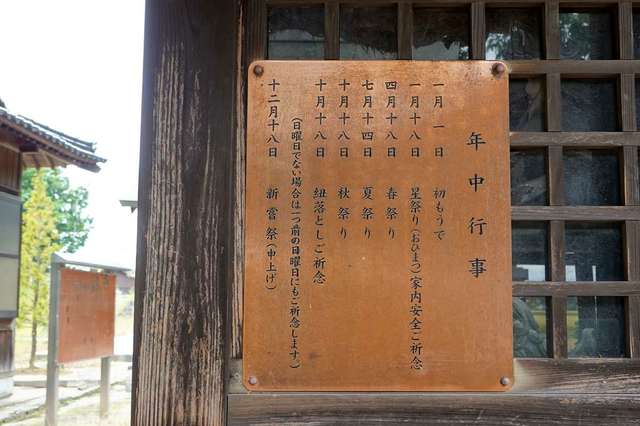 年中行事
一月 一日 初もうで
一月十八日 星祭り(おひまつ)家内安全ご祈念
四月十八日 春祭り
七月十四日 夏祭り
十月十八日 秋祭り
十月十八日 紐落としご祈念
(日曜日でない場合は一つ前の日曜日にもご祈念します。)
十二月十八日 新嘗祭(申上げ)